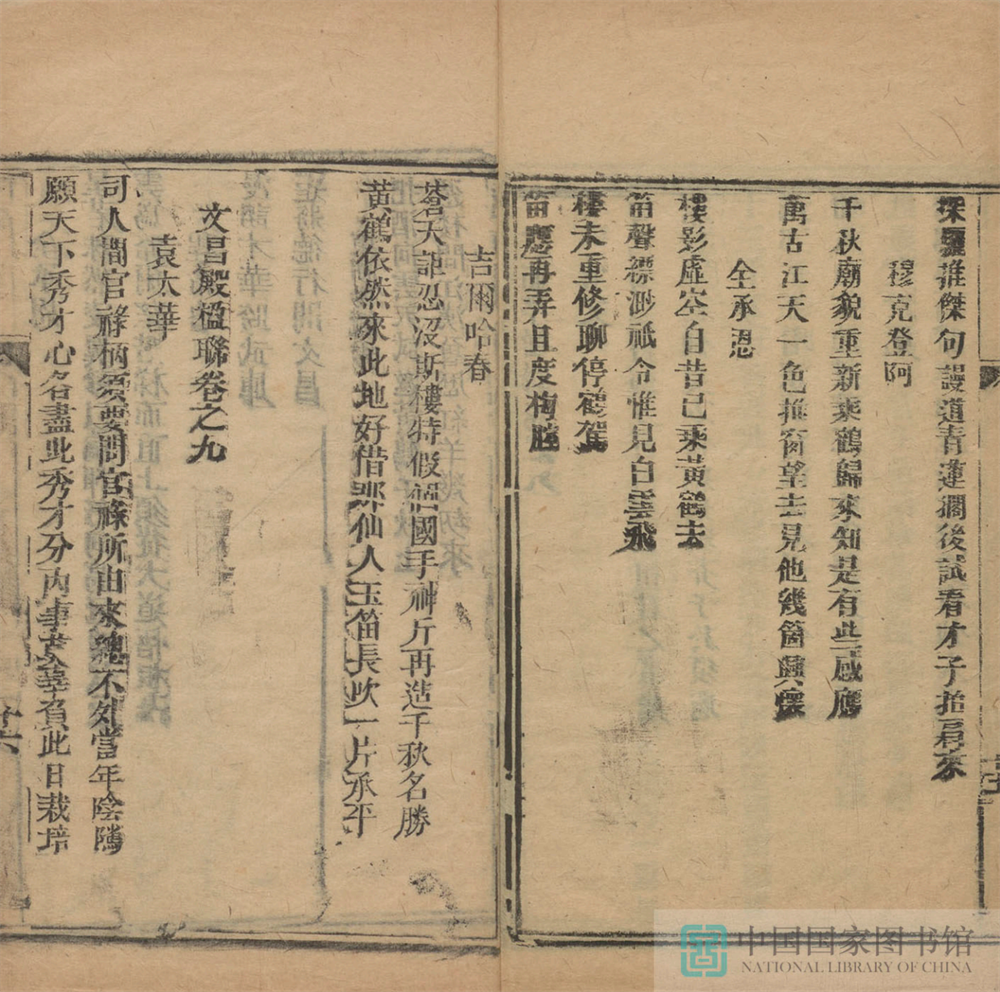 探驪誰傑句謾道青蓮擱後試看才子抬尋來
穆克登阿
千秋廟貌重新乘鶴歸來知是有些感應
萬古江天一色推窗望去見他幾箇興懷
全承恩
樓影虛空自昔已乘黃鶴去
笛聲縹渺祇令惟見白雲飛
樓未重修聊停鶴駕
笛應再弄且度梅腔
吉爾哈春
蒼天詎忍沒斯樓特假個國手神斤再造千秋名勝
黃鶴依然來此地好借那仙人玉笛長吹一片承平
文昌殿楹聯卷之九
袁太華
司人間官祿柄須要問官祿所由來總不外當年陰隲
願天下秀才心名盡此秀才分內事莫辜負此日栽培
中国国家图书馆
NATIONAL LIBRARY OF CHINA